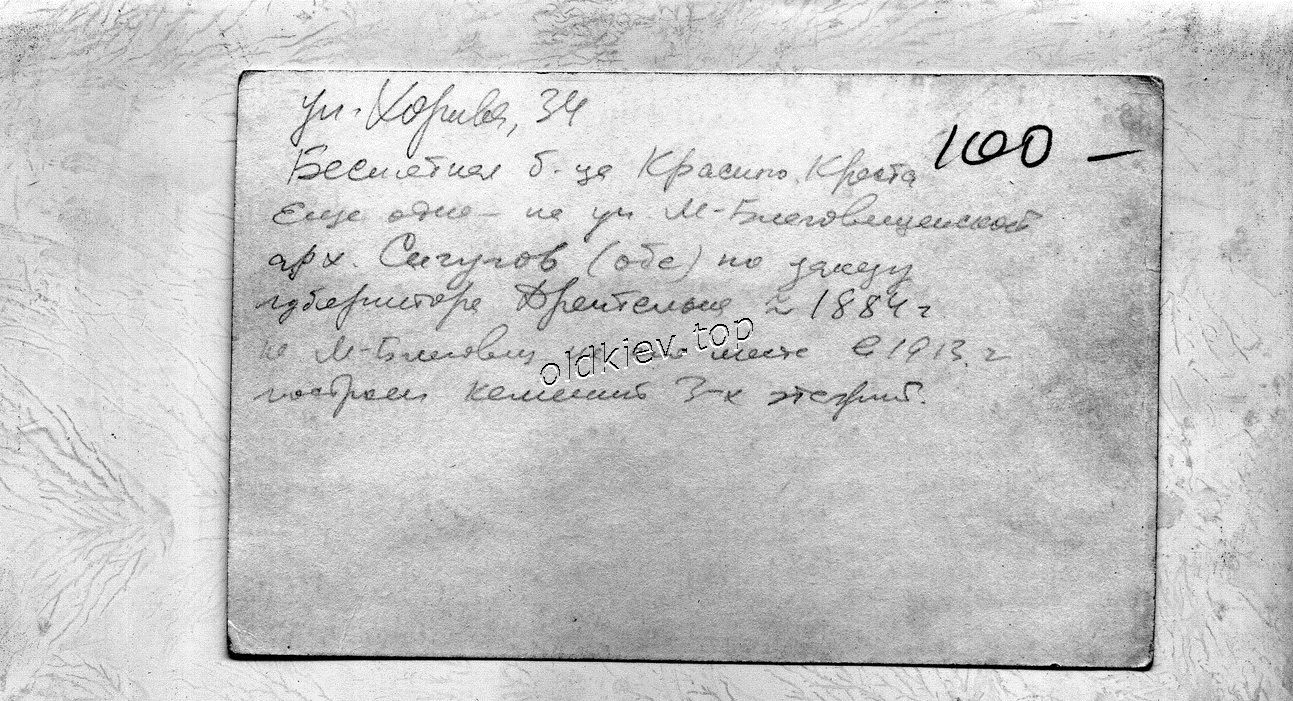 ул. Хорива, 34
100 —
Бесплатная б-ца Красного Креста
Еще одна - на ул. М-Благовещенской
арх. Сичугов (обе) по заказу
губернатора Дрентельна 1884 г
на М-Благовещ месте в 1913 г
построен каменный 3-х этажный.
oldkiev.top